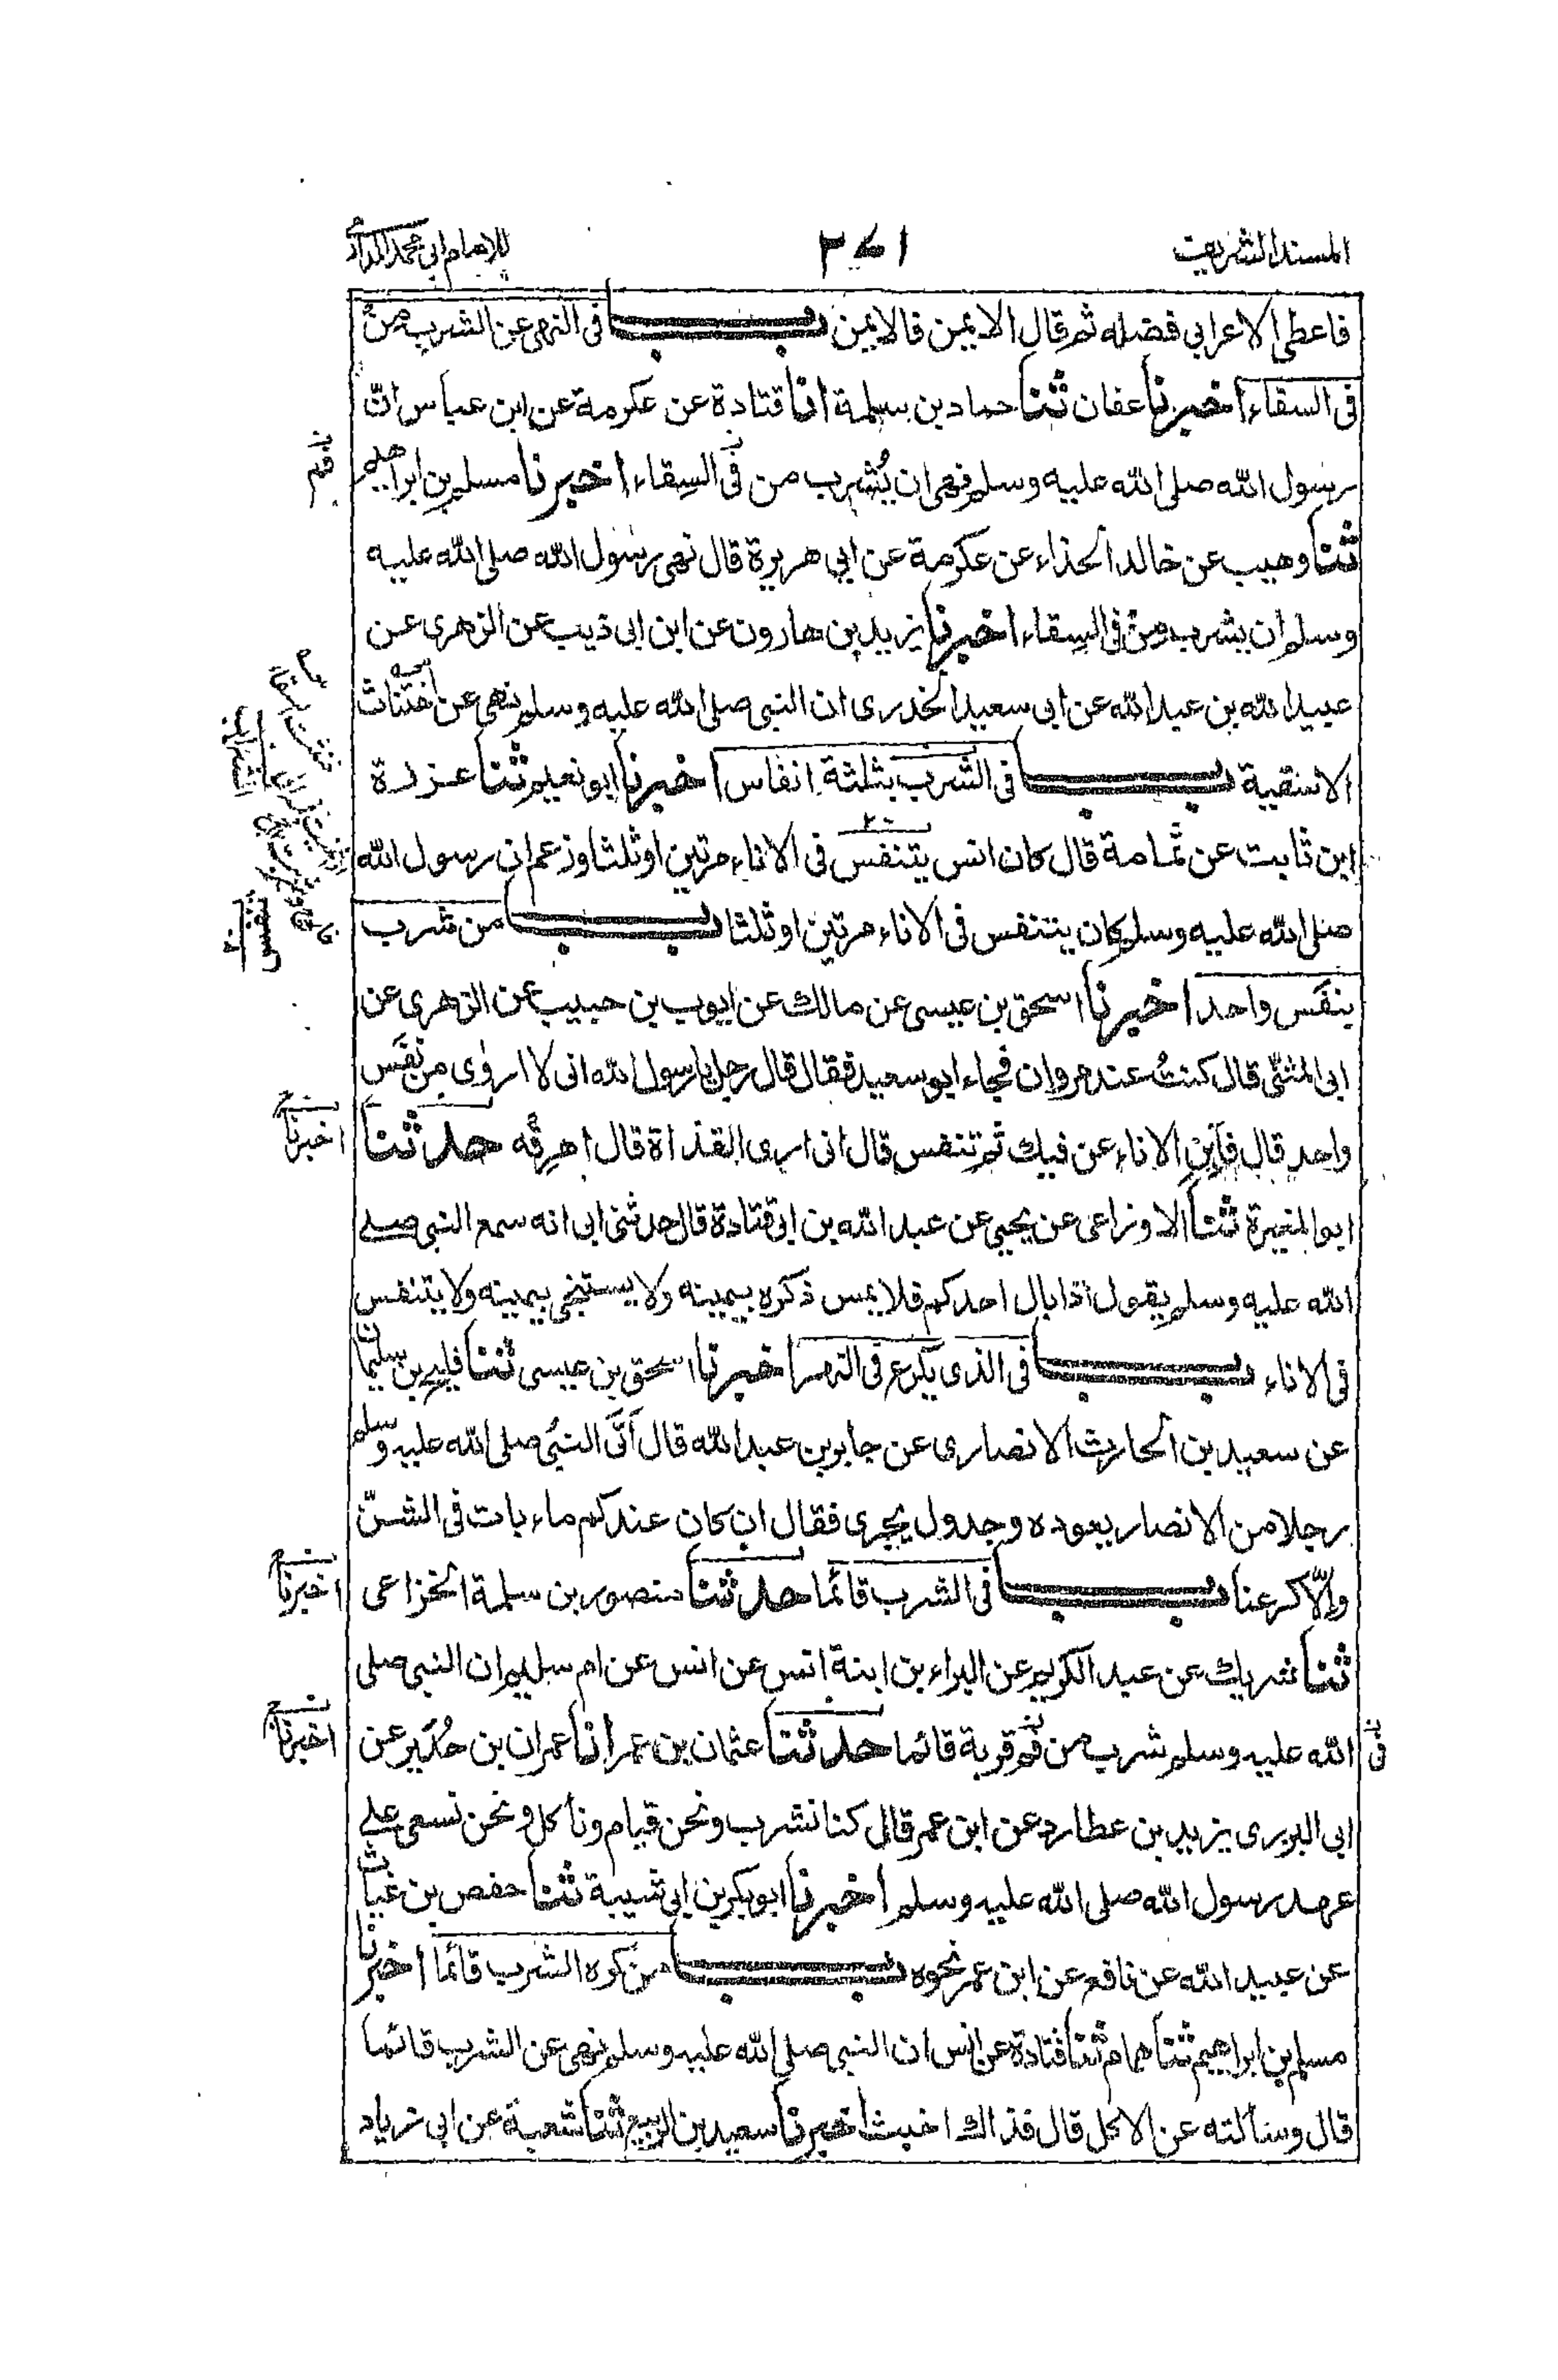 المسند الشريف
٢٧١
للامام ابي محمد الدارمي
فاعطى الاعرابي فضله ثم قال الايمن فالايمن باب في النهي عن الشرب من
في السقاء اخبرنا عفان ثنا حماد بن سلمة انا قتادة عن عكرمة عن ابن عباس انّ
رسول الله صلى الله عليه وسلم نهى ان يُشرب من في السِقاء اخبرنا مسلم بن ابراهيم
فم
ثنا وهيب عن خالد الحذاء عن عكرمة عن ابي هريرة قال نهى رسول الله صلى الله عليه
وسلم ان يشرب من في السِقاء اخبرنا يزيد بن هارون عن ابن ابي ذيب عن الزهرى عن
عبيد الله بن عبد الله عن ابي سعيد الخدرى ان النبي صلى الله عليه وسلم نهى عن اختناث
الاسقية باب في الشرب بثلثة انفاس اخبرنا ابو نعيم ثنا عزرة
ابن ثابت عن ثمامة قال كان انس يتنفس في الاناء مرتين او ثلثا وزعم ان رسول الله
صلى الله عليه وسلم كان يتنفس في الاناء مرتين او ثلثا باب من شرب
بنفَس واحد اخبرنا اسحق بن عيسى عن مالك عن ايوب بن حبيب عن الزهرى عن
ابي المثنّى قال كنتُ عند مروان فجاء ابو سعيد فقال قال رجل يا رسول الله انى لا اروٰى من نفَس
واحد قال فاَبِنِ الاناء عن فيك ثم تنفس قال انى ارى القذاة قال اهرِقه حدثنا
اخبرنا
ابو المغيرة ثنا الاوزاعى عن يحيى عن عبد الله بن ابي قتادة قال حدثنى ابى انه سمع النبي صلى
الله عليه وسلم يقول اذا بال احدكم فلا يمس ذكره بيمينه ولا يستنجى بيمينه ولا يتنفس
في الاناء باب في الذى يكرع في النهر اخبرنا اسحق بن عيسى ثنا فليح بن سليمان
عن سعيد بن الحارث الانصارى عن جابر بن عبد الله قال اَتَى النبيُ صلى الله عليه وسلم
رجلا من الانصار يعوده وجدول يجرى فقال ان كان عندكم ماء بات في الشنّ
والّا كرعنا باب في الشرب قائما حدثنا منصور بن سلمة الخزاعى
اخبرنا
ثنا شريك عن عبد الكريم عن البراء بن ابنة انس عن انس عن ام سليم ان النبي صلى
الله عليه وسلم شرب من فم قربة قائما حدثنا عثمان بن عمر انا عمران بن حُدَير عن
في
اخبرنا
ابي البزرى يزيد بن عطارد عن ابن عمر قال كنا نشرب ونحن قيام ونأكل ونحن نسعى على
عهد رسول الله صلى الله عليه وسلم اخبرنا ابو بكر بن ابي شيبة ثنا حفص بن غياث
عن عبيد الله عن نافع عن ابن عمر نحوه باب من كره الشرب قائما اخبرنا
مسلم بن ابراهيم ثنا همام ثنا قتادة عن انس ان النبي صلى الله عليه وسلم نهى عن الشرب قائما
قال وسألته عن الاكل قال فذاك اخبث اخبرنا سعيد بن الربيع ثنا شعبة عن ابي زياد